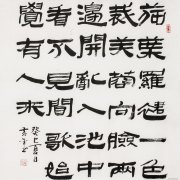 荷葉羅裙一色
裁芙蓉向臉兩
邊開亂入池中
看不見聞歌始
覺有人來
癸巳夏日